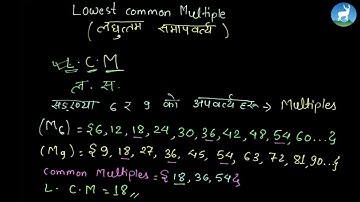 Lowest common Multiple
(लघुत्तम समापवर्त्य)
L.C.M
ल. स.
सङ्ख्या 6 र 9 को अपवर्त्यहरू → Multiples
(M6) = {6, 12, 18, 24, 30, 36, 42, 48, 54, 60...}
(M9) = {9, 18, 27, 36, 45, 54, 63, 72, 81, 90...}
Common Multiples = {18, 36, 54}
L. C. M = 18 〃